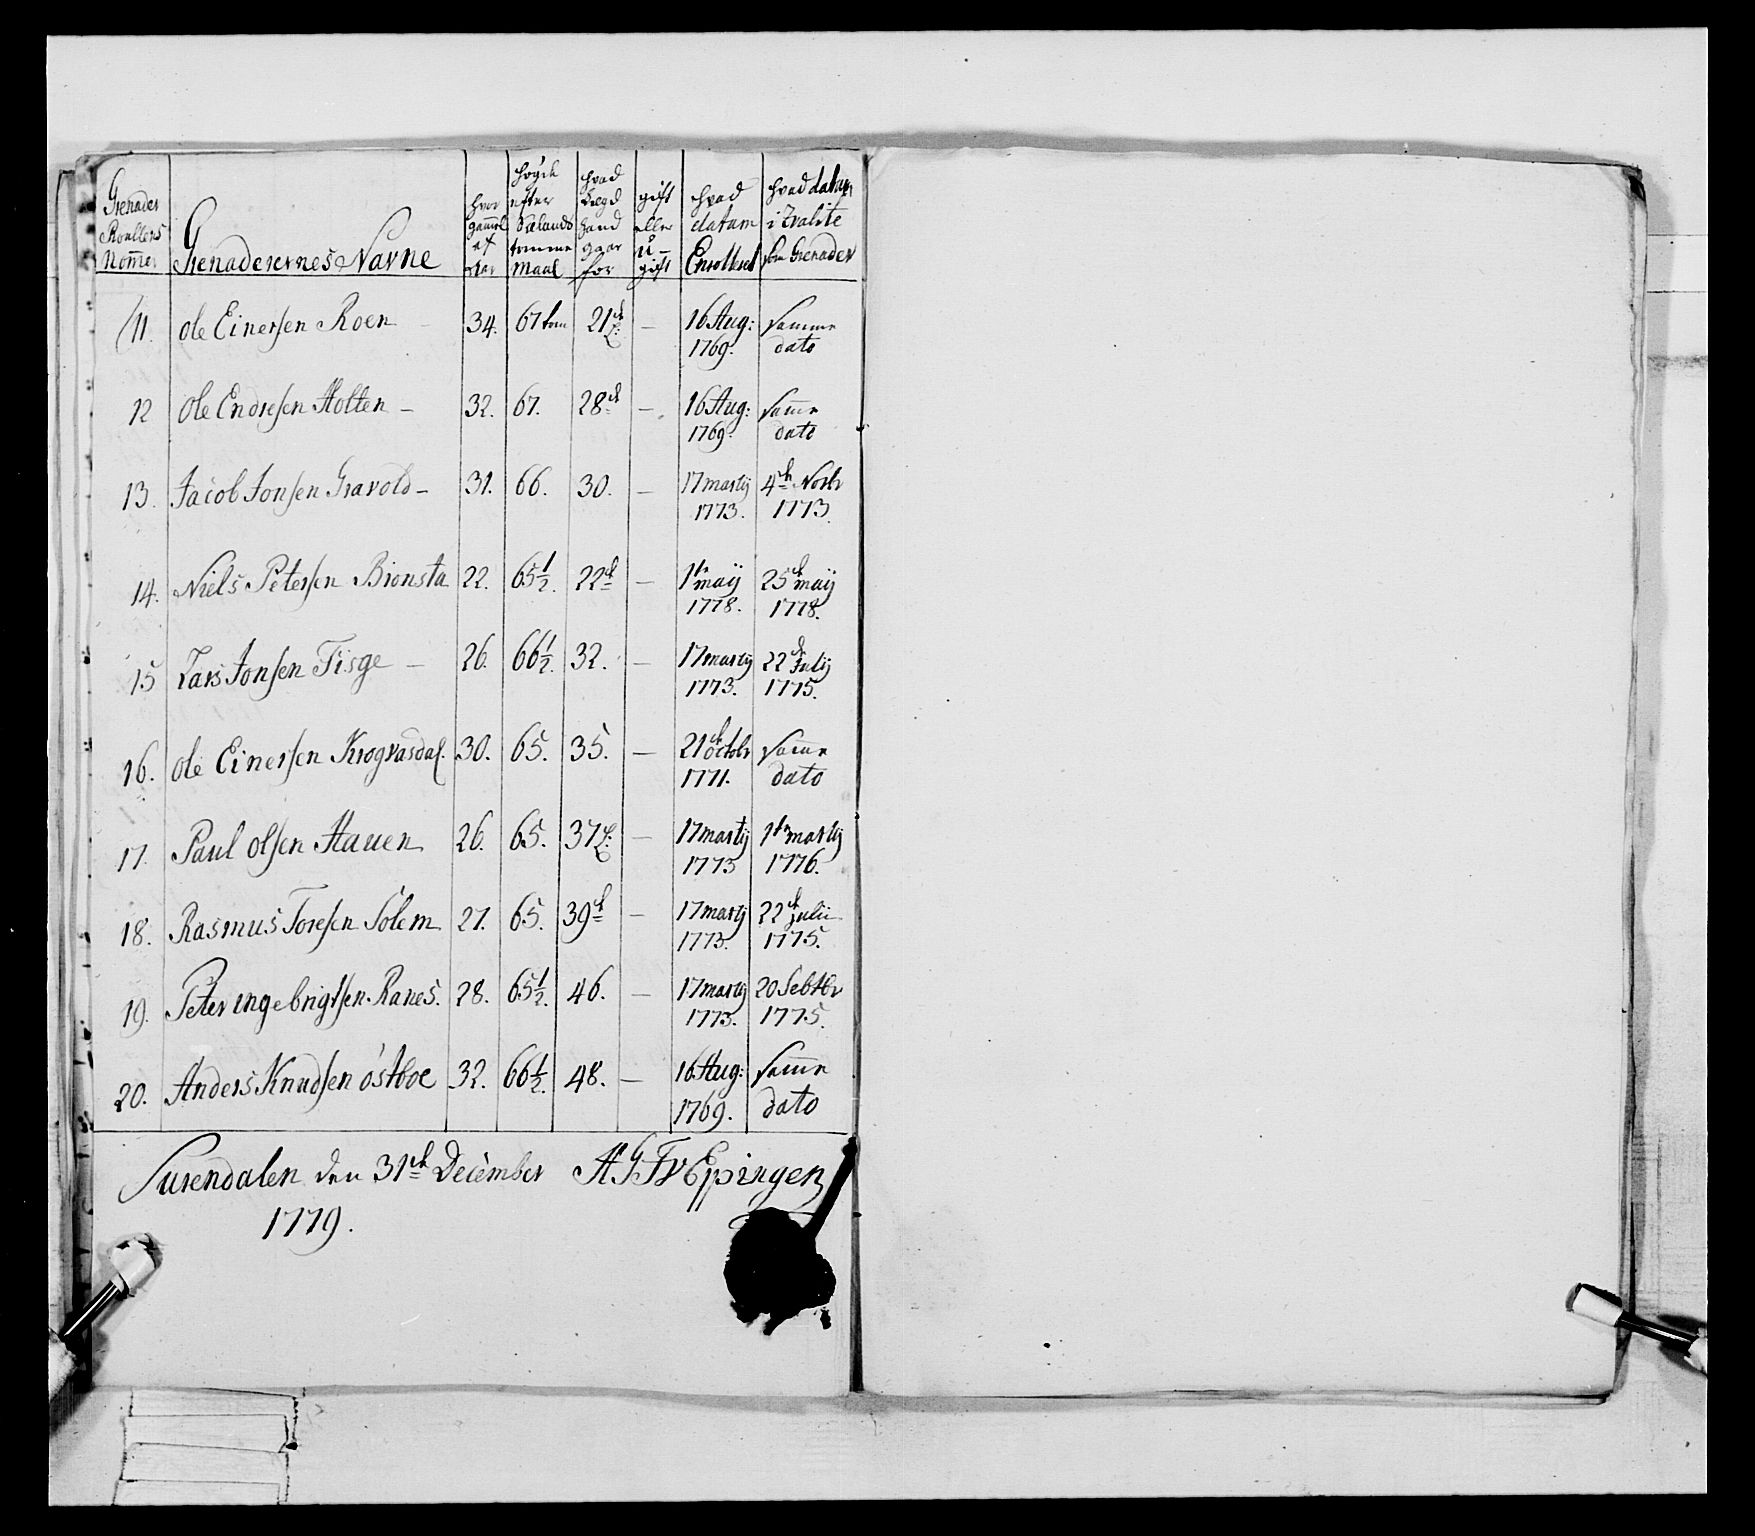 Grenader Roullens Nom̄er | Grenaderernes Navne | hvor gam̄el af aar | høyde efter Sælands tomme maal | hvad Lægd hand gaar for | gift eller u-gift | hvad datum Enrolleret | hvad datum i qvalite som Grenader
11. ole Einersen Roen 34. 67 tom 21de L: — 16 Aug: 1769. samme dato
12 Ole Endresen Holten – 32. 67. 28de — 16 Aug: 1769. sam̄e dato
13. Jacob Jonsen Gravold – 31. 66. 30. — 17 martij 1773. 4de Novbr 1773.
14. Niels Petersen Bionsta 22. 65½. 22de — 1te maij 1778. 25de maij 1778.
15 Lars Jonsen Fisge – 26. 66½. 32. — 17 martij 1773. 22de Julij 1775.
16. ole Einersen Krogvasdal. 30. 65. 35. — 21de octobr 1771. sam̄e dato
17. Paul olsen Hauen 26. 65. 37 L: — 17 martij 1773 1te martij 1776.
18. Rasmus Toresen Solem 27. 65. 39de — 17 martij 1773. 22de Julii 1775.
19. Peter ingebrigtsen Ranes. 28. 65½. 46. — 17 martij 1773. 20 Sebtbr 1775.
20. Anders Knudsen østboe 32. 66½. 48. — 16 Aug: 1769. sam̄e dato
Surendalen den 31de December A G F v Eppingen
1779.